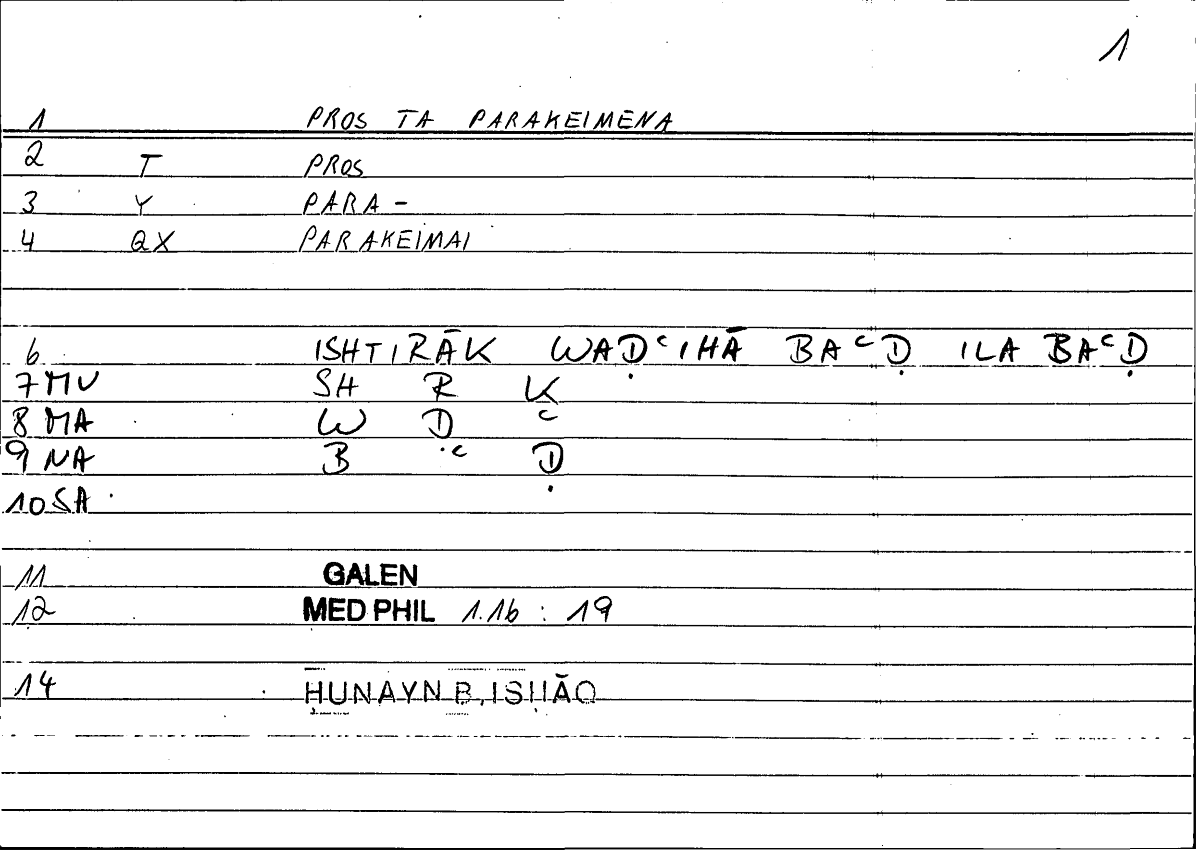 1
1 PROS TA PARAKEIMENA
2 T PROS
3 Y PARA -
4 QX PARAKEIMAI
6 ISHTIRĀK WAḌʿIHĀ BAʿḌ ILA BAʿḌ
7 MU SH R K
8 MA W Ḍ ʿ
9 NA B ʿ Ḍ
10 SA
11 GALEN
12 MED PHIL 1.16 : 19
14 ḤUNAYN B. ISḤĀQ